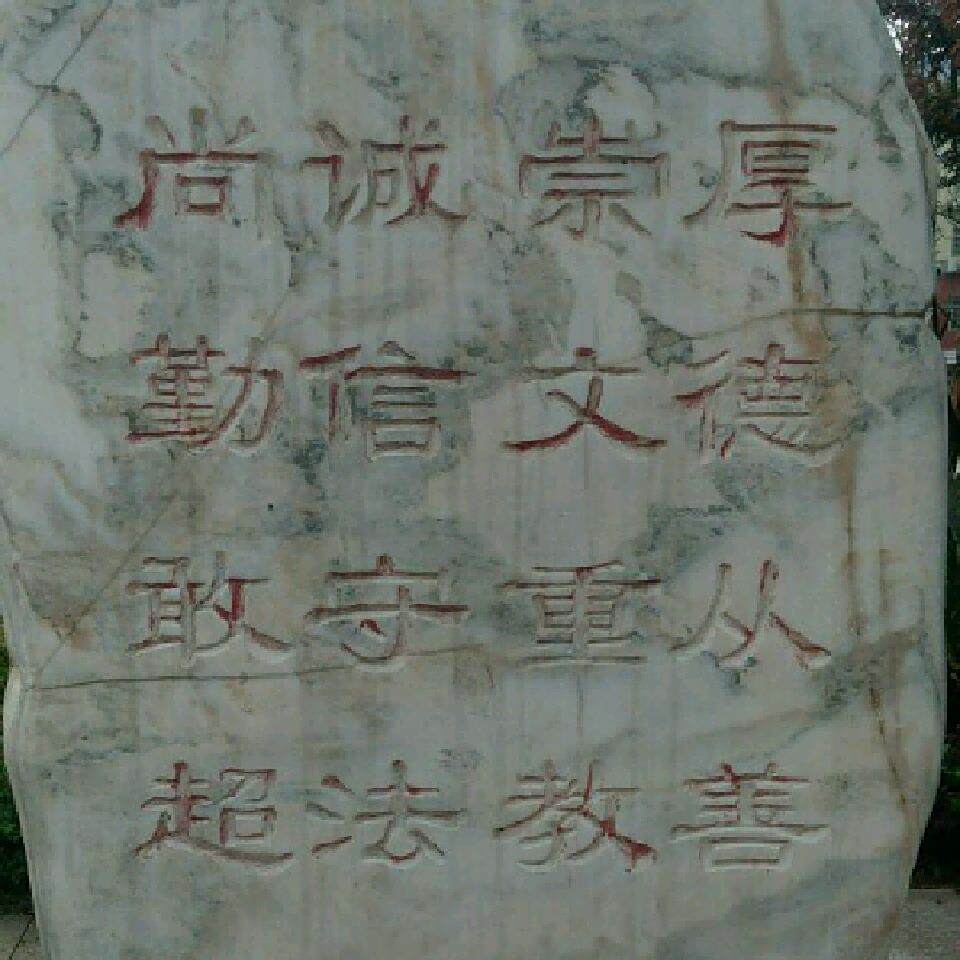 厚德从善
崇文重教
诚信守法
尚勤敢超